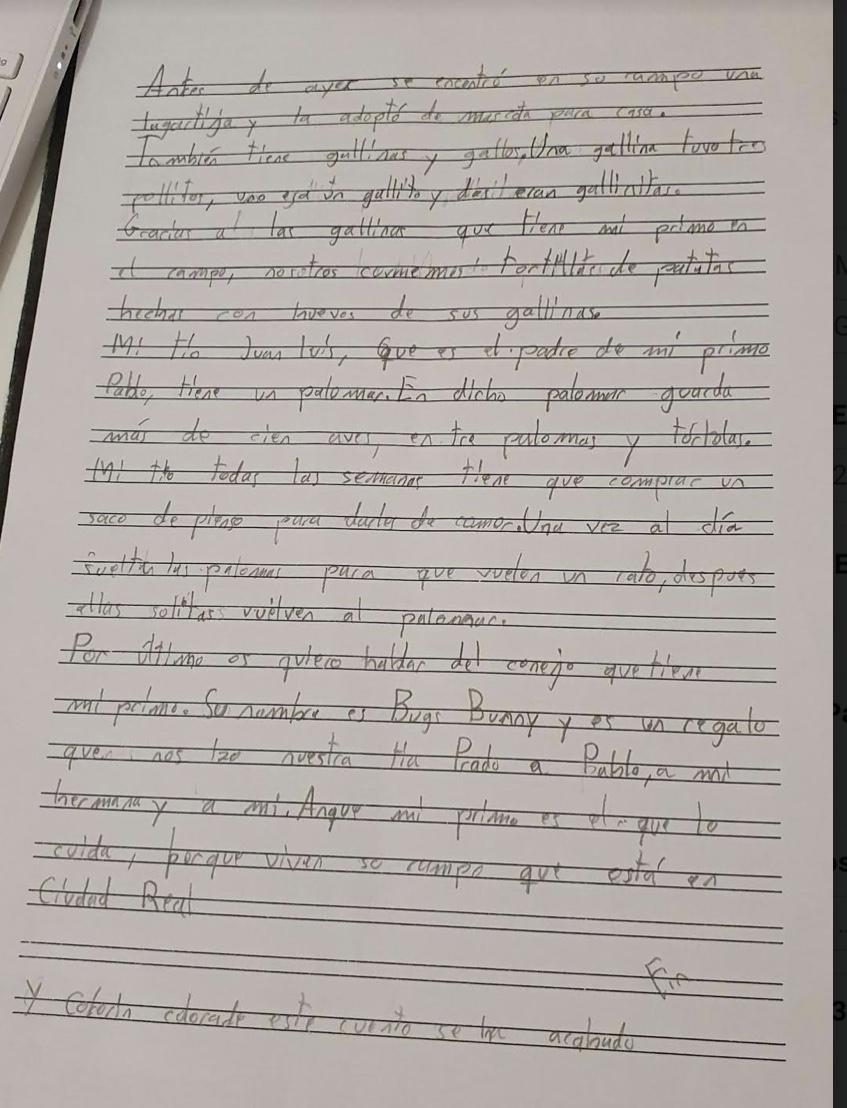 Antes de ayer se encontró en su campo una
lagartija y la adoptó de mascota para casa.
También tiene gallinas y gallos. Una gallina tuvo tres
pollitos, uno era un gallito y dos eran gallinitas.
Gracias a las gallinas que tiene mi primo en
el campo, nosotros comemos tortillas de patatas
hechas con huevos de sus gallinas.
Mi tío Juan Luis, que es el padre de mi primo
Pablo, tiene un palomar. En dicho palomar guarda
más de cien aves, en tre palomas y tórtolas.
Mi tío todas las semanas tiene que comprar un
saco de pienso para darles de comer. Una vez al día
suelta las palomas para que vuelen un rato, despues
ellas solitas vuelven al palomar.
Por último os quiero hablar del conejo que tiene
mi primo. Su nombre es Bugs Bunny y es un regalo
que nos izo nuestra tía Prado a Pablo, a mi
hermana y a mi. Anque mi primo es el que lo
cuida, porque viven su campo que está en
Ciudad Real
Fin
Y colorín colorado este cuento se ha acabado